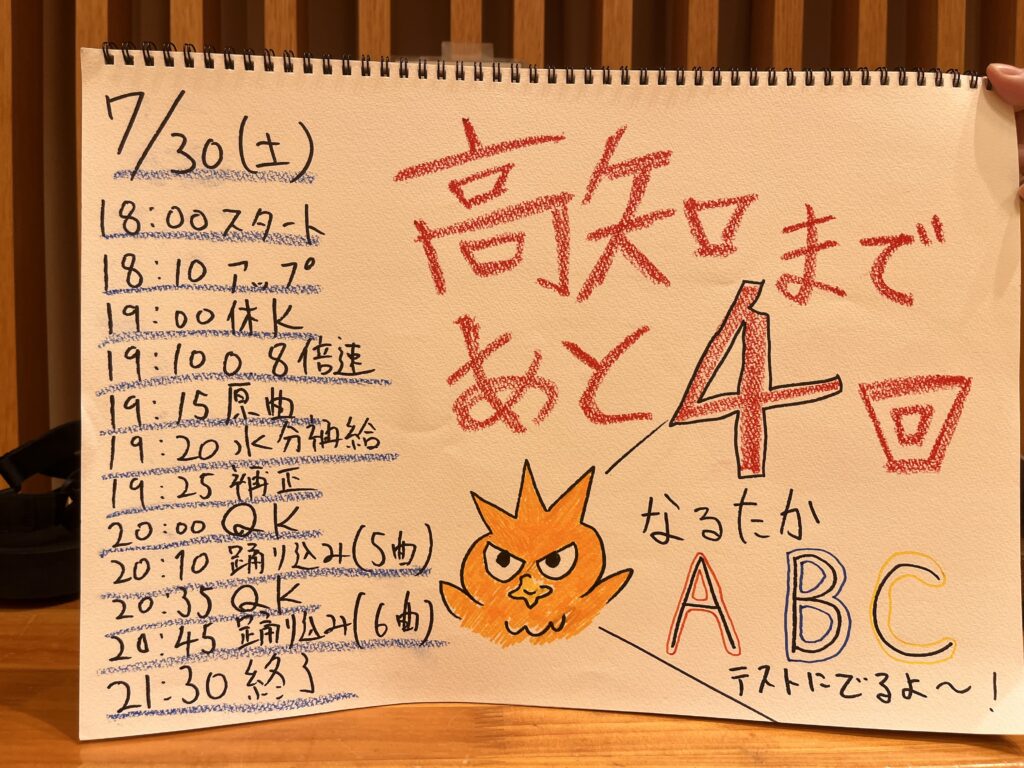 7/30(土)
18:00 スタート
18:10 アップ
19:00 休K
19:10 0 8倍速
19:15 原曲
19:20 水分補給
19:25 補正
20:00 QK
20:10 踊り込み(5曲)
20:35 QK
20:45 踊り込み(6曲)
21:30 終了
高知まで
あと4回
なるたか
A B C
テストにでるよ〜!